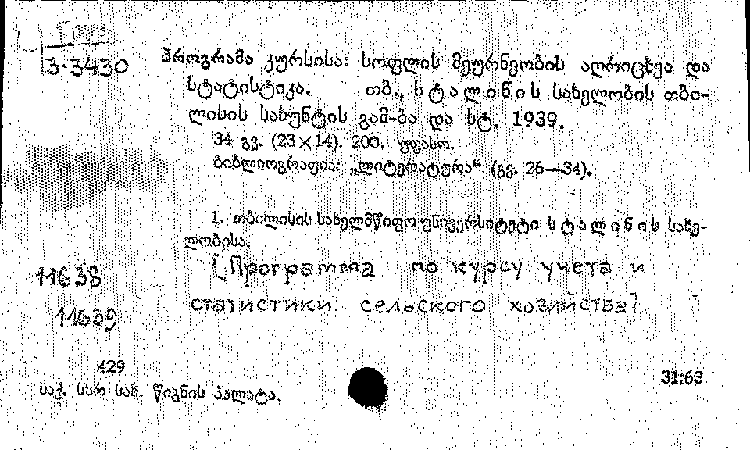 3-3430
პროგრამა კურსისა: სოფლის მეურნეობის აღრიცხვა და
სტატისტიკა. თბ., სტალინის სახელობის თბი-
ლისის სახუნტის გამ-ბა და სტ. 1939.
34 გვ. (23×14). 200. უფასო.
ბიბლიოგრაფია: „ლიტერატურა“ (გვ. 26—34).
1. თბილისის სახელმწიფო უნივერსიტეტი სტალინის სახე-
ლობისა.
[Программа по курсу учета и
11638
статистики сельского хозяйства]
11639
429
31:63
საქ. სსრ სახ. წიგნის პალატა.